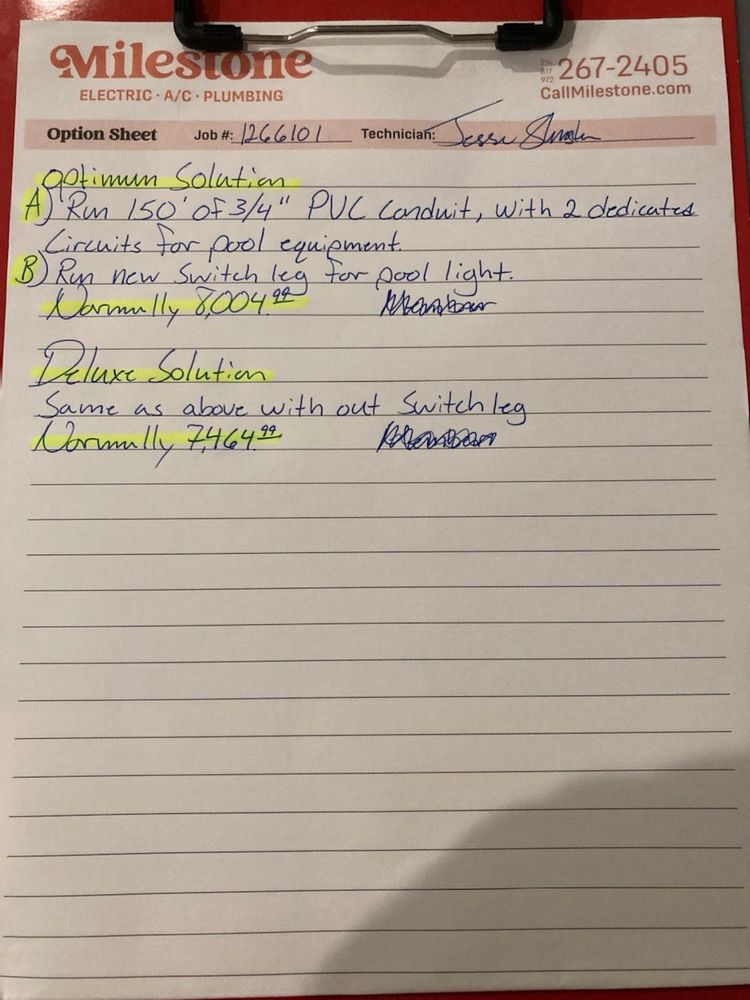 Milestone
ELECTRIC · A/C · PLUMBING
214
817
972
267-2405
CallMilestone.com
Option Sheet Job #: 1266101 Technician:
Optimum Solution
A) Run 150' of 3/4" PVC Conduit, with 2 dedicated
Circuits for pool equipment.
B) Run new Switch leg for pool light.
Normally 8,004.99
Deluxe Solution
Same as above with out Switch leg
Normally 7,464.99